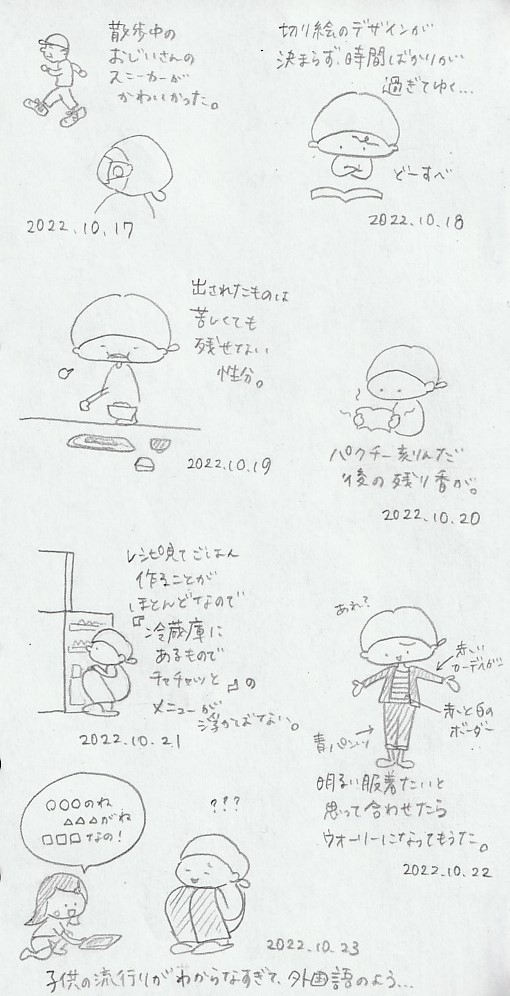 散歩中の
おじいさんの
スニーカーが
かわいかった。
2022.10.17
切り絵のデザインが
決まらず、時間ばかりが
過ぎてゆく...
どーすべ
2022.10.18
出されたものは
苦しくても
残せない
性分。
2022.10.19
パクチー刻んだ
後の残り香が。
2022.10.20
レシピ見てごはん
作ることが
ほとんどなので
『冷蔵庫に
あるもので
チャチャッと』の
メニューが
浮かばない。
2022.10.21
あれ?
赤い
カーディガン
赤と白の
ボーダー
青パンツ
明るい服着たいと
思って合わせたら
ウォーリーになってもうた。
2022.10.22
○○○のね
△△△がね
□□□なの!
???
2022.10.23
子供の流行りがわからなすぎて、外国語のよう...